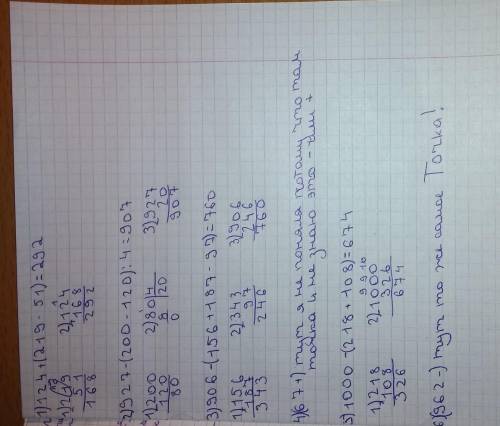 1) 124+(219-51)=292
1) 219 2) 124
51 168
168 292
2) 927-(200-120):4=907
1) 200 2) 80 4 3) 927
120 8 20 20
80 0 907
3) 906-(156+187-97)=760
1) 156 2) 343 3) 906
187 97 246
343 246 760
4) (67+) тут я не поняла потому что там
точка и не знаю это - или +
5) 1000-(218+108)=674
9 9 10
1) 218 2) 1000
108 326
326 674
6) (962-) тут то же самое Точка!